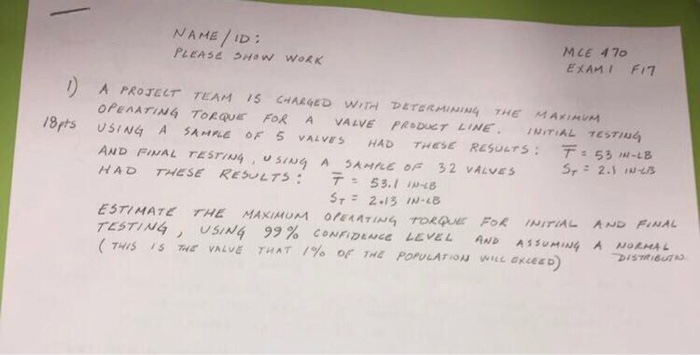 NAME / ID:
PLEASE SHOW WORK
MCE 470
EXAM 1 F17
1) A PROJECT TEAM IS CHARGED WITH DETERMINING THE MAXIMUM
18pts OPERATING TORQUE FOR A VALVE PRODUCT LINE. INITIAL TESTING
USING A SAMPLE OF 5 VALVES HAD THESE RESULTS: T̅ = 53 IN-LB
S_T = 2.1 IN-LB
AND FINAL TESTING, USING A SAMPLE OF 32 VALVES
HAD THESE RESULTS: T̅ = 53.1 IN-LB
S_T = 2.13 IN-LB
ESTIMATE THE MAXIMUM OPERATING TORQUE FOR INITIAL AND FINAL
TESTING, USING 99% CONFIDENCE LEVEL AND ASSUMING A NORMAL
DISTRIBUTION.
(THIS IS THE VALUE THAT 1% OF THE POPULATION WILL EXCEED)